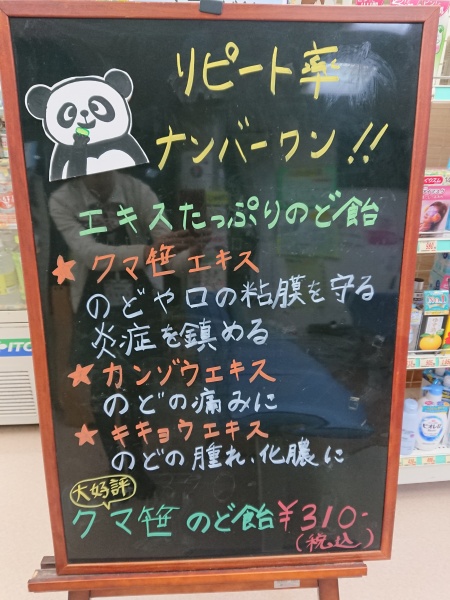 リピート率
ナンバーワン!!
エキスたっぷりのど飴
★クマ笹エキス
のどや口の粘膜を守る
炎症を鎮める
★カンゾウエキス
のどの痛みに
★キキョウエキス
のどの腫れ、化膿に
大好評
クマ笹のど飴¥310-
(税込)